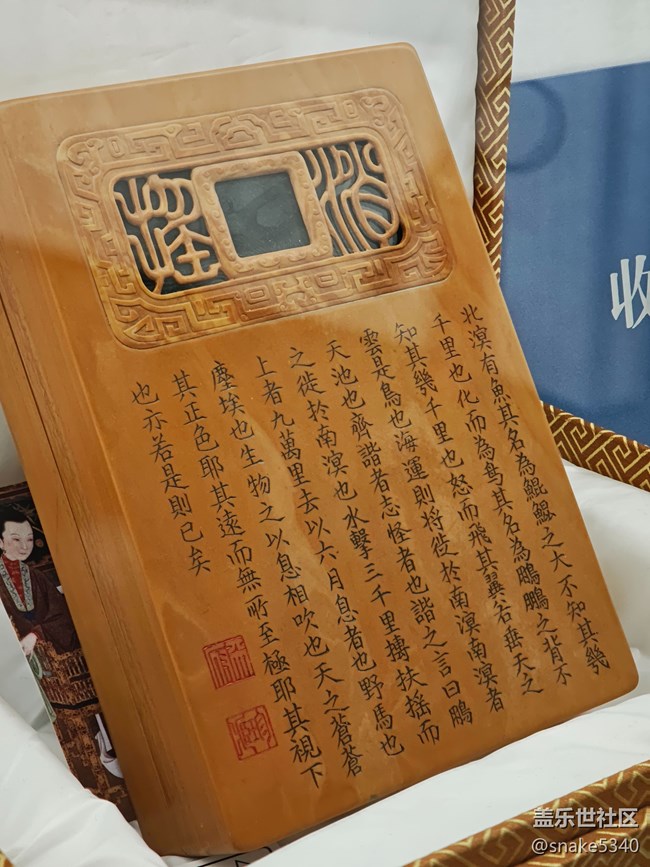 消摇
北溟有魚其名為鯤鯤之大不知其幾
千里也化而為鳥其名為鵬鵬之背不
知其幾千里也怒而飛其翼若垂天之
雲是鳥也海運則将徙於南溟南溟者
天池也齊諧者志怪者也諧之言曰鵬
之徙於南溟也水擊三千里摶扶摇而
上者九萬里去以六月息者也野馬也
塵埃也生物之以息相吹也天之蒼蒼
其正色耶其遠而無所至極耶其視下
也亦若是則已矣
收
盖乐世社区
@snake5340